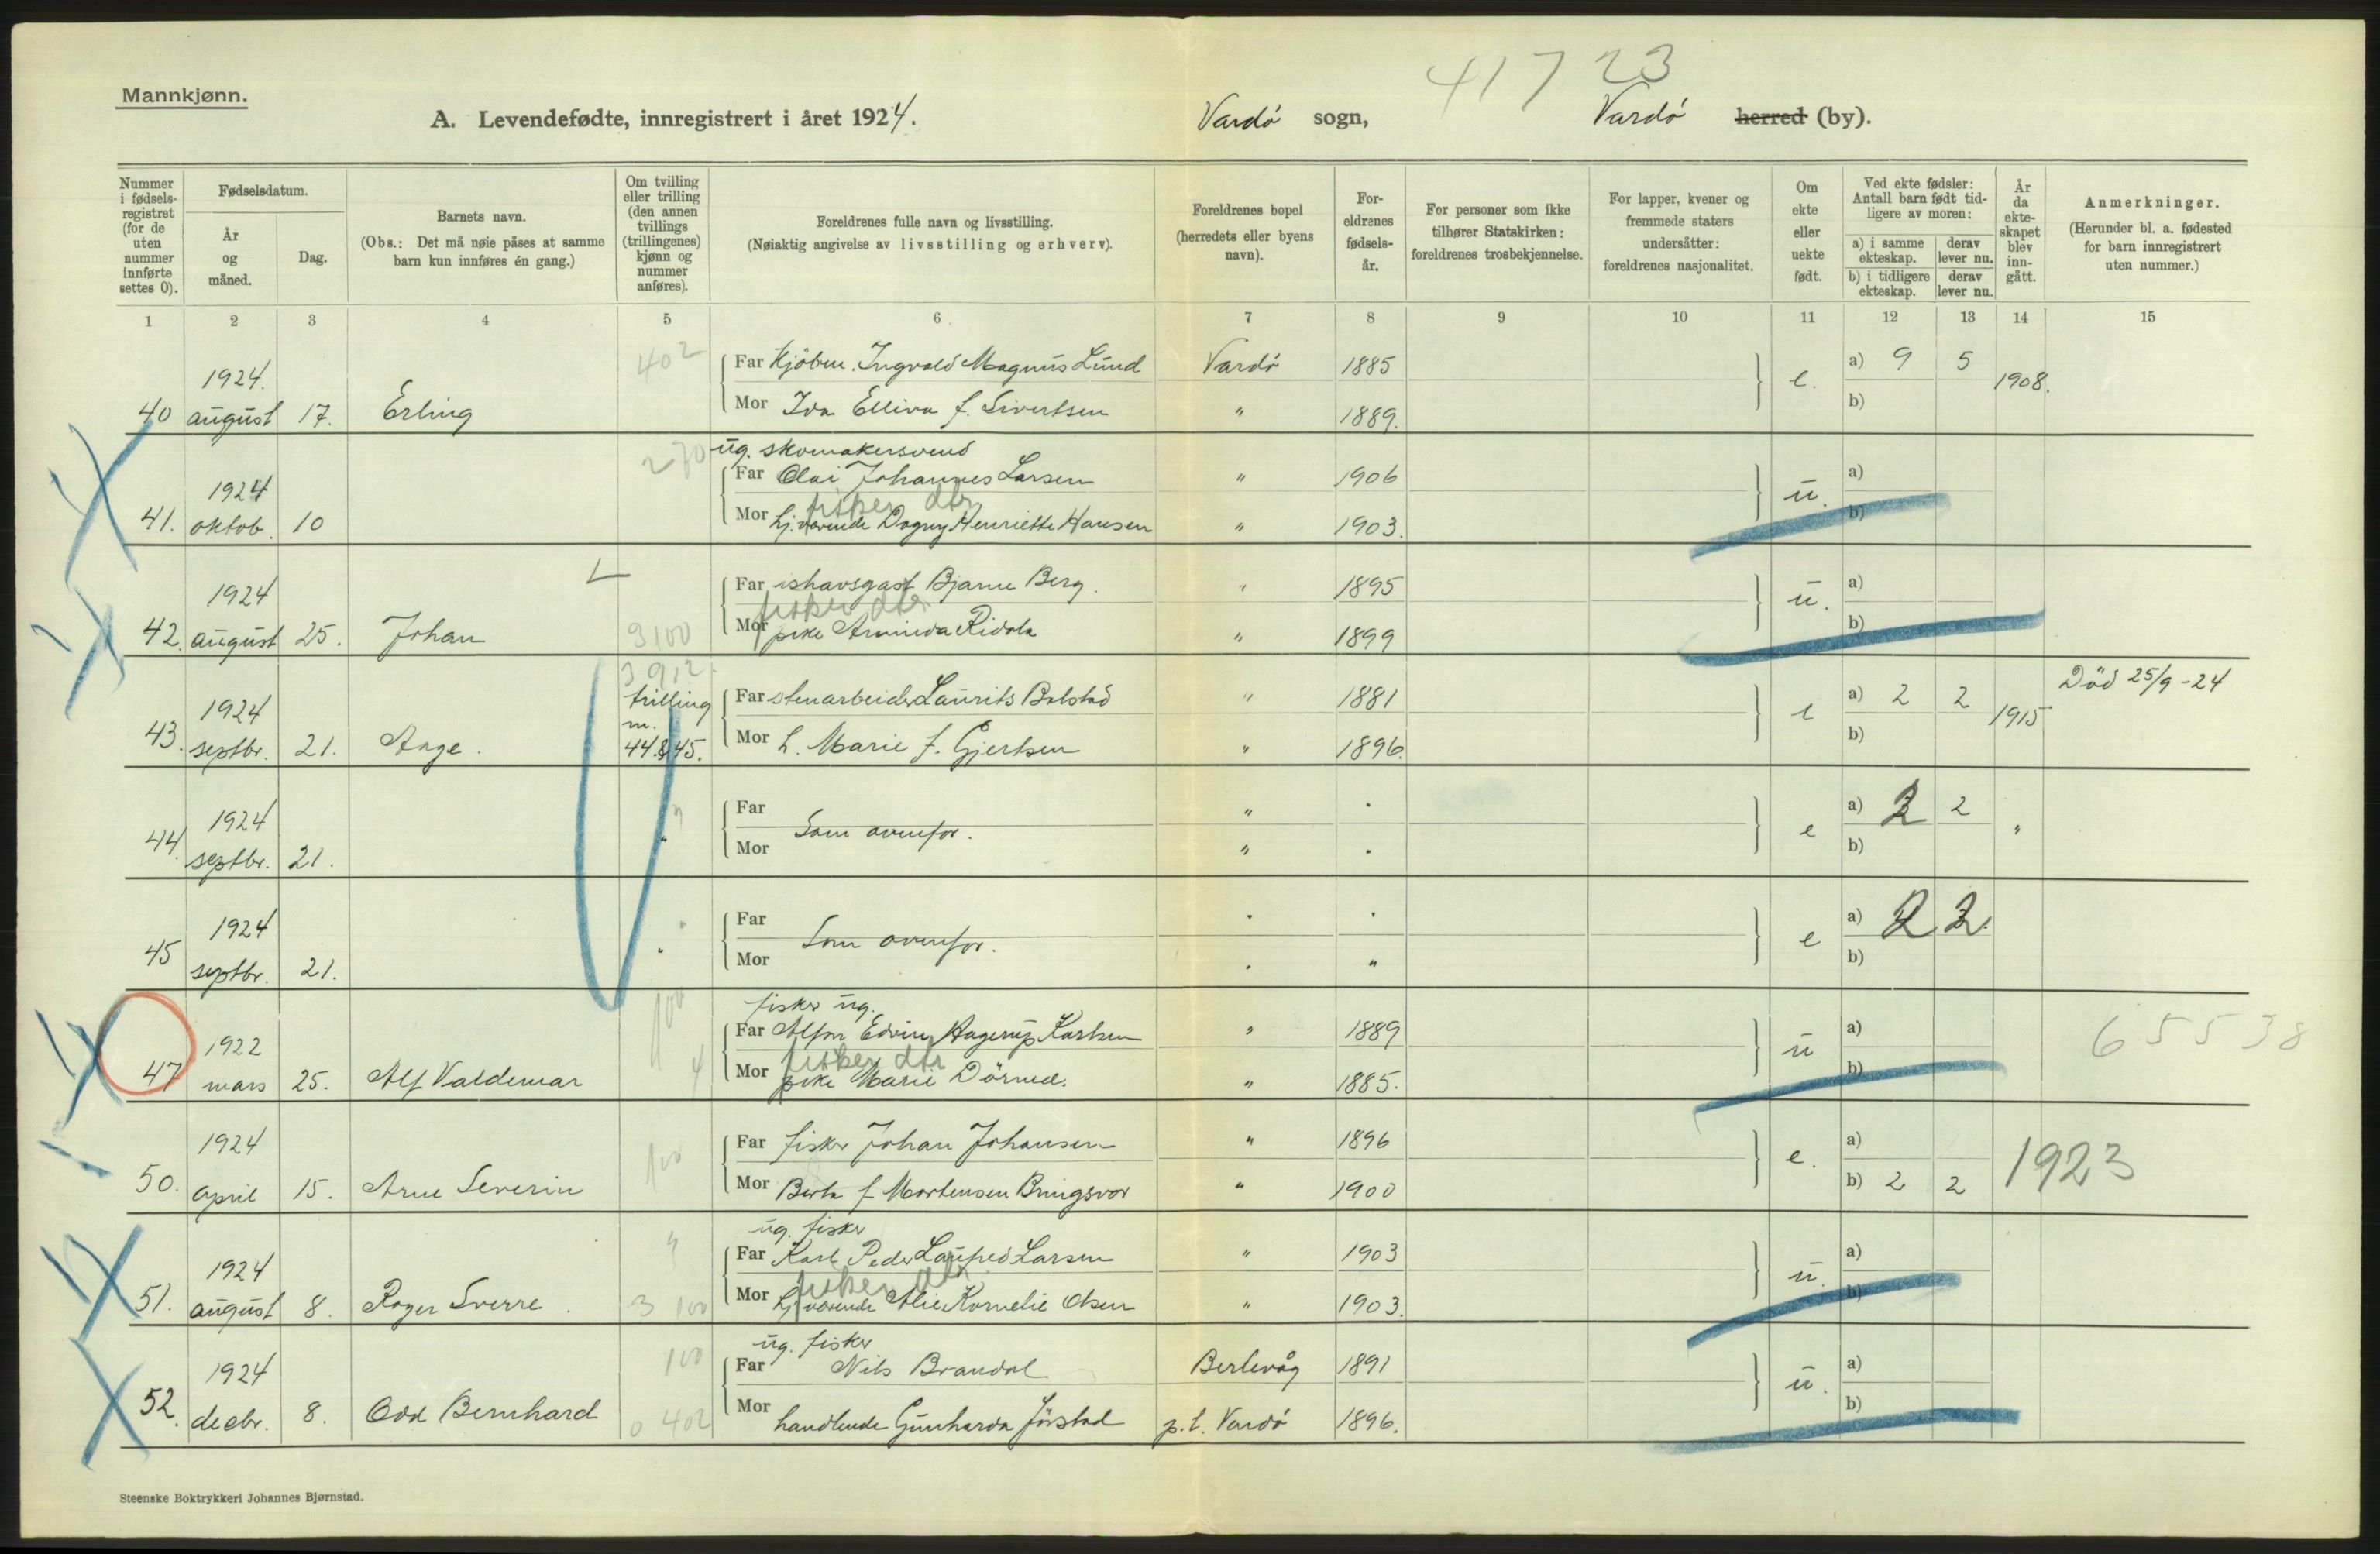 41723
Mannkjønn.
A. Levendefødte, innregistrert i året 1924.
Vardø sogn,
Vardø herred (by).
Nummer i fødsels-registret (for de uten nummer innførte settes 0).
Fødselsdatum.
År og måned.
Dag.
Barnets navn.
(Obs.: Det må nøie påses at samme barn kun innføres én gang.)
Om tvilling eller trilling (den annen tvillings (trillingenes) kjønn og nummer anføres).
Foreldrenes fulle navn og livsstilling.
(Nøiaktig angivelse av livsstilling og erhverv).
Foreldrenes bopel (herredets eller byens navn).
For-eldrenes fødsels-år.
For personer som ikke tilhører Statskirken: foreldrenes trosbekjennelse.
For lapper, kvener og fremmede staters undersåtter: foreldrenes nasjonalitet.
Om ekte eller uekte født.
Ved ekte fødsler: Antall barn født tid-ligere av moren:
a) i samme ekteskap.
derav lever nu.
b) i tidligere ekteskap.
derav lever nu.
År da ekte-skapet blev inn-gått.
Anmerkninger.
(Herunder bl. a. fødested for barn innregistrert uten nummer.)
1 2 3 4 5 6 7 8 9 10 11 12 13 14 15
402
1924. Far Kjöbm. Ingvald Magnus Lund Vardø 1885 a) 9 5
40 august 17. Erling Mor Ida Elliva f. Sivertsen " 1889. e. b) 1908.
270 ug. skomakersvend
1924 Far Olai Johannes Larsen " 1906 a)
fisker dtr
41. oktob. 10 Mor hj.værende Dagny Henriette Hansen " 1903. u. b)
1924 Far ishavsgast Bjarne Berg. " 1895 a)
fisker dtr
42. august 25. Johan 3100 Mor pike Arminda Ridala " 1899 u. b)
3912
1924 trilling m. Far stenarbeider Laurits Bolstad " 1881 a) 2 2 Död 25/9-24
43. septbr. 21. Aage. 44 & 45. Mor h. Marie f. Gjertsen " 1896. e b) 1915
1924 Far " a) 2 2
44. septbr. 21. " Som ovenfor. Mor " e b) "
1924 Far a) 2 2.
45 septbr. 21. " Som ovenfor. Mor " e b)
100 fisker ug.
1922 Far Alfon Edvin Hagerup Karlsen " 1889 a) 65538
4 fisker dtr
47 mars 25. Alf Valdemar Mor pike Marie Dörmed. " 1885. u b)
1924 Far fisker Johan Johansen " 1896 a)
50. april 15. Arne Severin 100 Mor Berta f Mortensen Bringsvor " 1900 e. b) 2 2 1923
ug. fisker
1924 Far Karl Peder Laufred Larsen " 1903 a)
fisker dtr
51. august 8. Roger Sverre. 3 100 Mor hj.værende Alie Kornelie Olsen " 1903. u. b)
100 ug. fisker
1924 Far Nils Brandal Berlevåg 1891 a)
52. decbr. 8. Odd Bernhard 0 402 Mor handlende Gunharda Jörstad p.t. Vardø 1896. u. b)
Steenske Boktrykkeri Johannes Bjørnstad.